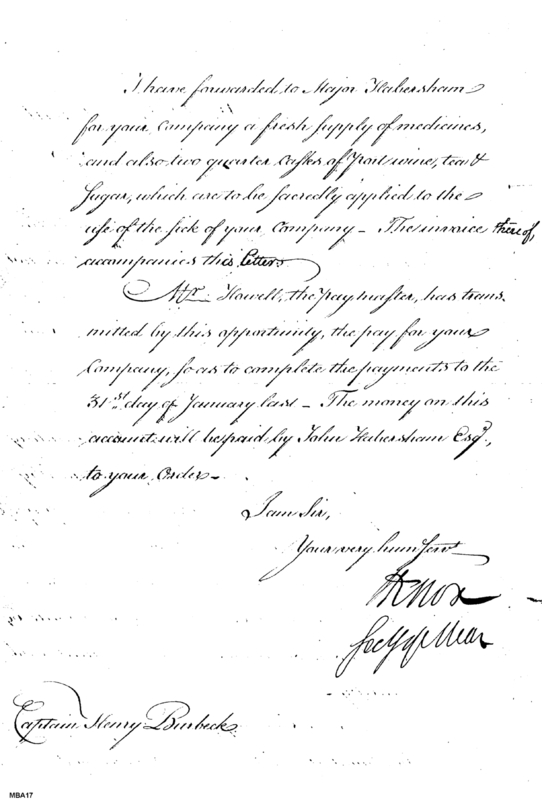 I have forwarded to Major Habersham
for your Company a fresh supply of medicines,
and also two quarter Casks of Port wine, tea &
Sugar, which are to be sacredly applied to the
use of the sick of your Company – The invoice thereof,
accompanies this letter.
Mr Howell, the Pay Master, has trans
mitted by this opportunity, the pay for your
Company, so as to complete the payments to the
31st day of January last – The money on this
account will be paid by John Habersham Esqr,
to your Order –
I am Sir,
Your very hum Servt
HKnox
Secy of War
Captain Henry Burbeck
MBA17